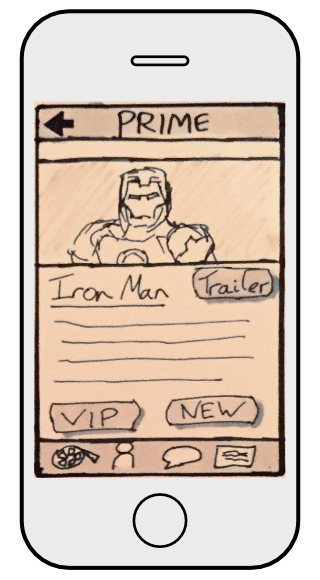 PRIME
Iron Man
Trailer
VIP
NEW